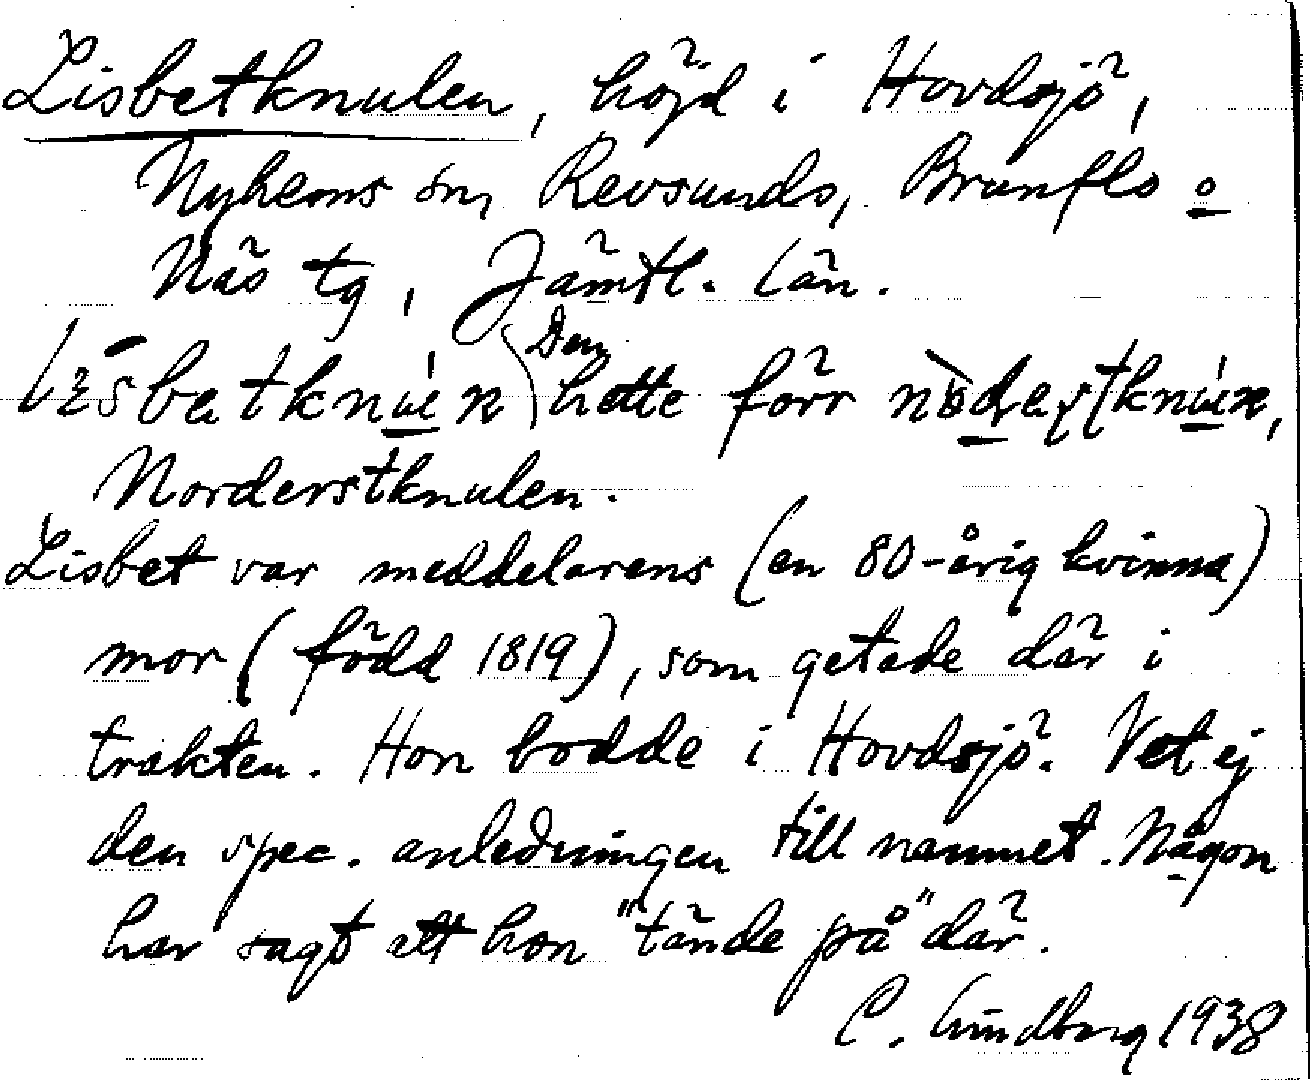 Lisbetknulen, höjd i Hovdsjö,
Nyhems sn, Revsunds, Brunflo o
Näs tg, Jämtl. län.
Den hette förr
Norderstknulen.
Lisbet var meddelarens (en 80-årig kvinna)
mor (född 1819), som getade där i
trakten. Hon bodde i Hovdsjö. Vet ej
den spec. anledningen till namnet. Någon
har sagt att hon "tände på" där.
C. Lindberg 1938